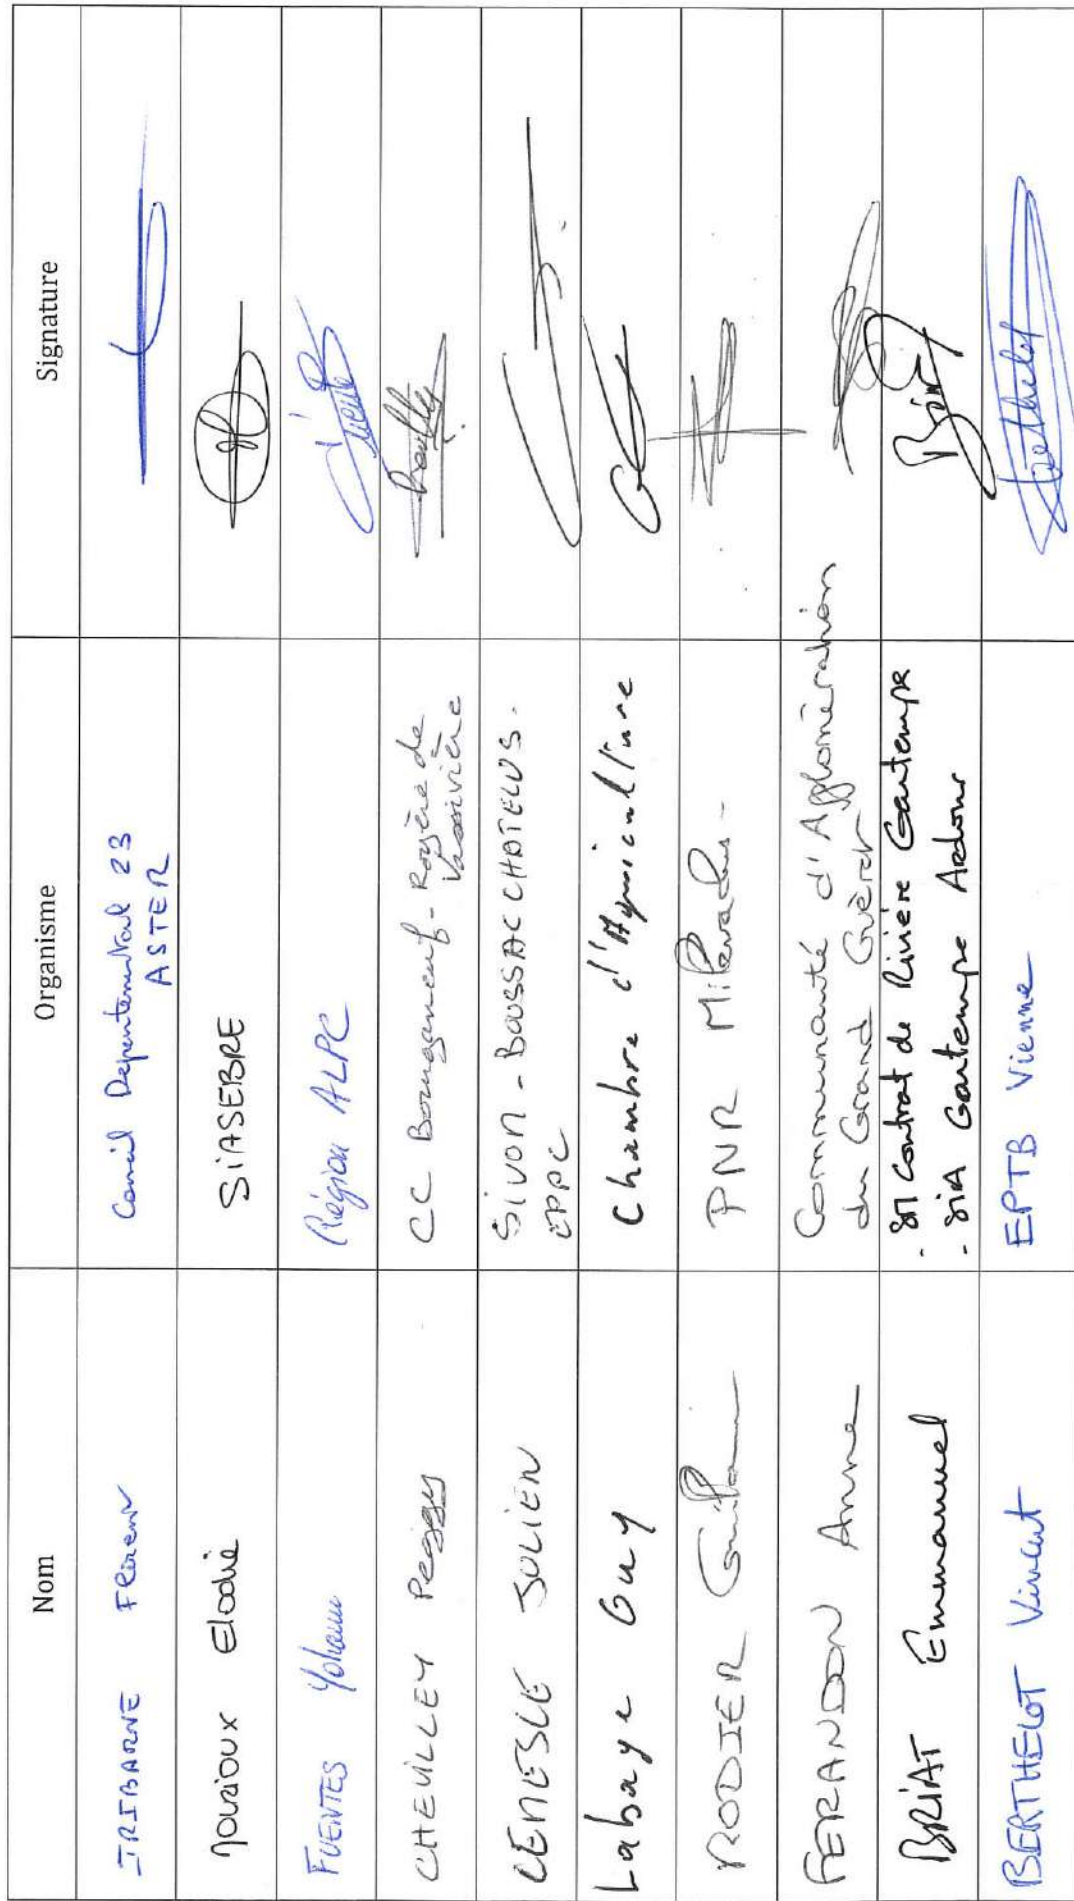 Nom Organisme Signature
IRIBARNE Florent Conseil Departemental 23
ASTER
Elodie SIASEBRE
FUENTES Yohann Région ALPC
CHEVILLEY Peggy CC Bourganeuf - Royère de
Vassivière
LENESLE JULIEN SIVOM - BOUSSAC CHATELUS -
Labaye Guy Chambre d'Agriculture
RODIER Guilhem PNR Millevaches -
FERANDON Anne Communauté d'Agglomération
du Grand Guéret
BRIAT Emmanuel - SM Contrat de Rivière Gartempe
- SIA Gartempe Ardour
BERTHELOT Vincent EPTB Vienne Berthelot